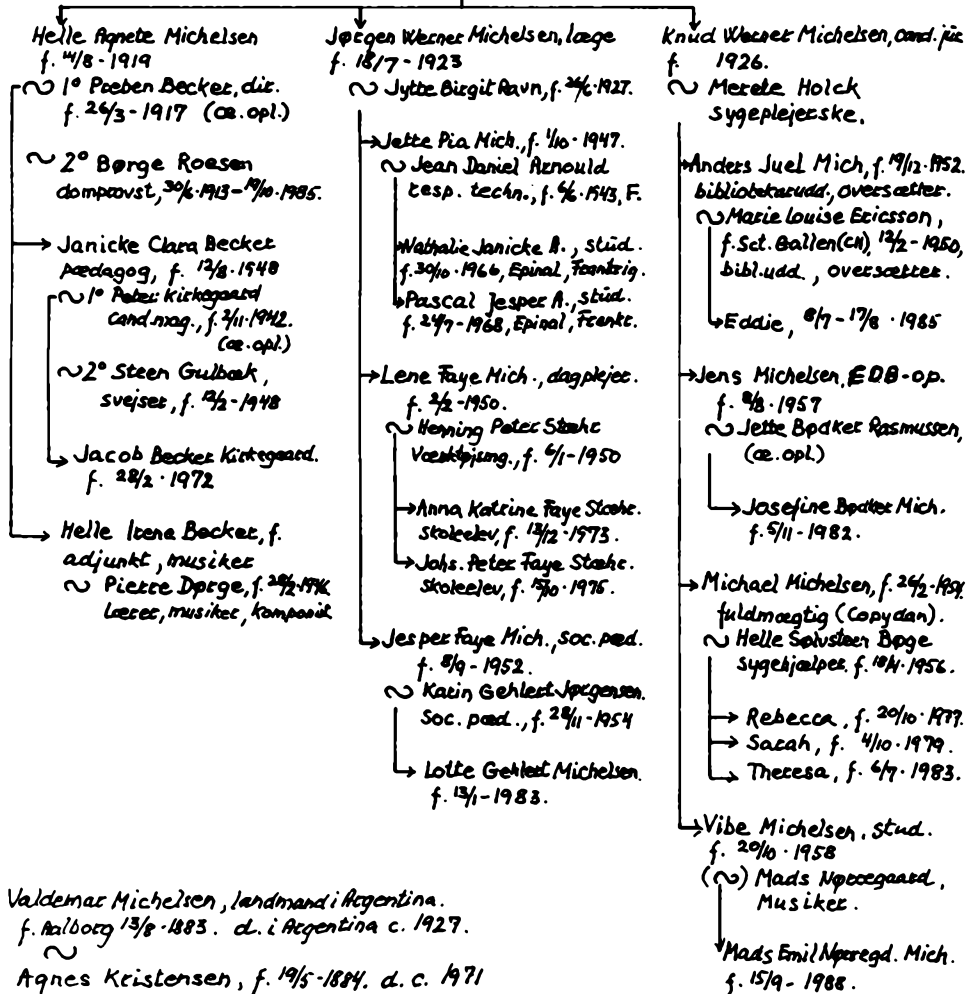 Helle Agnete Michelsen
f. 14/8 - 1919
~ 1° Preben Becker, dir.
f. 26/3 - 1917 (æ. opl.)
~ 2° Børge Roesen
domprovst, 30/6 · 1913 - 19/10 - 1985.
Janicke Clara Becker
pædagog, f. 12/8 · 1948
~ 1° Peter Kirkegaard
Cand. mag., f. 2/11 · 1942.
(æ. opl.)
~ 2° Steen Gulbæk,
svejser, f. 12/2 - 1948
Jacob Becker Kirkegaard.
f. 28/2 · 1972
Helle Irene Becker, f.
adjunkt, musiker
~ Pierre Dørge, f. 28/2 · 1946
Lærer, musiker, komponist
Jørgen Werner Michelsen, læge
f. 18/7 - 1923
~ Jytte Birgit Ravn, f. 26/6 · 1927.
Jette Pia Mich., f. 1/10 · 1947.
~ Jean Daniel Arnould
resp. techn., f. 6/6 · 1943, F.
Nathalie Janicke A., stud.
f. 30/10 · 1966, Epinal, Frankrig.
Pascal Jesper A., stud.
f. 24/7 - 1968, Epinal, Frankr.
Lene Faye Mich., dagplejer.
f. 2/2 - 1950.
~ Henning Peter Stæhr
Værktøjsmg., f. 6/1 - 1950
Anna Katrine Faye Stæhr.
Skoleelev, f. 13/12 - 1973.
Johs. Peter Faye Stæhr.
Skoleelev, f. 15/10 · 1975.
Jesper Faye Mich., soc. pæd.
f. 8/9 - 1952.
~ Karin Gehlert Jørgensen.
Soc. pæd., f. 28/11 - 1954
Lotte Gehlert Michelsen.
f. 13/1 - 1983.
Knud Werner Michelsen, cand. jur.
f. 1926.
~ Merete Holck
sygeplejerske.
Anders Juel Mich, f. 19/12 · 1952.
bibliotekarudd., oversætter.
~ Marie Louise Ericsson,
f. Sct. Gallen (CH), 12/2 - 1950,
bibl. udd., oversætter.
Eddie, 8/7 - 17/8 · 1985
Jens Michelsen, EDB-op.
f. 8/8 · 1957
~ Jette Bødker Rasmussen,
(æ. opl.)
Josefine Bødker Mich.
f. 5/11 - 1982.
Michael Michelsen, f. 26/2 - 1954.
fuldmægtig (Copydan).
~ Helle Sølvsteen Bøge
sygehjælper, f. 18/4 · 1956.
Rebecca, f. 20/10 · 1977.
Sarah, f. 4/10 · 1979.
Theresa, f. 6/7 · 1983.
Vibe Michelsen, stud.
f. 20/10 · 1958
(~) Mads Nørregaard,
Musiker.
Mads Emil Nørregd. Mich.
f. 15/9 - 1988.
Valdemar Michelsen, landmand i Argentina.
f. Aalborg 13/8 · 1883. d. i Argentina c. 1927.
~
Agnes Kristensen, f. 19/5 - 1884. d. c. 1971